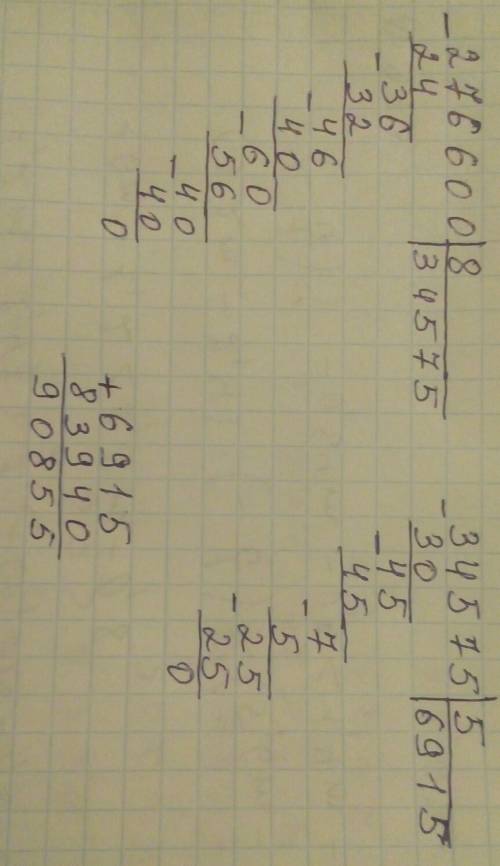 -276600|8
24 34575
-36
32
-46
40
-60
56
-40
40
0
-34575|5
30 6915
-45
45
-7
5
-25
25
0
+6915
83940
90855